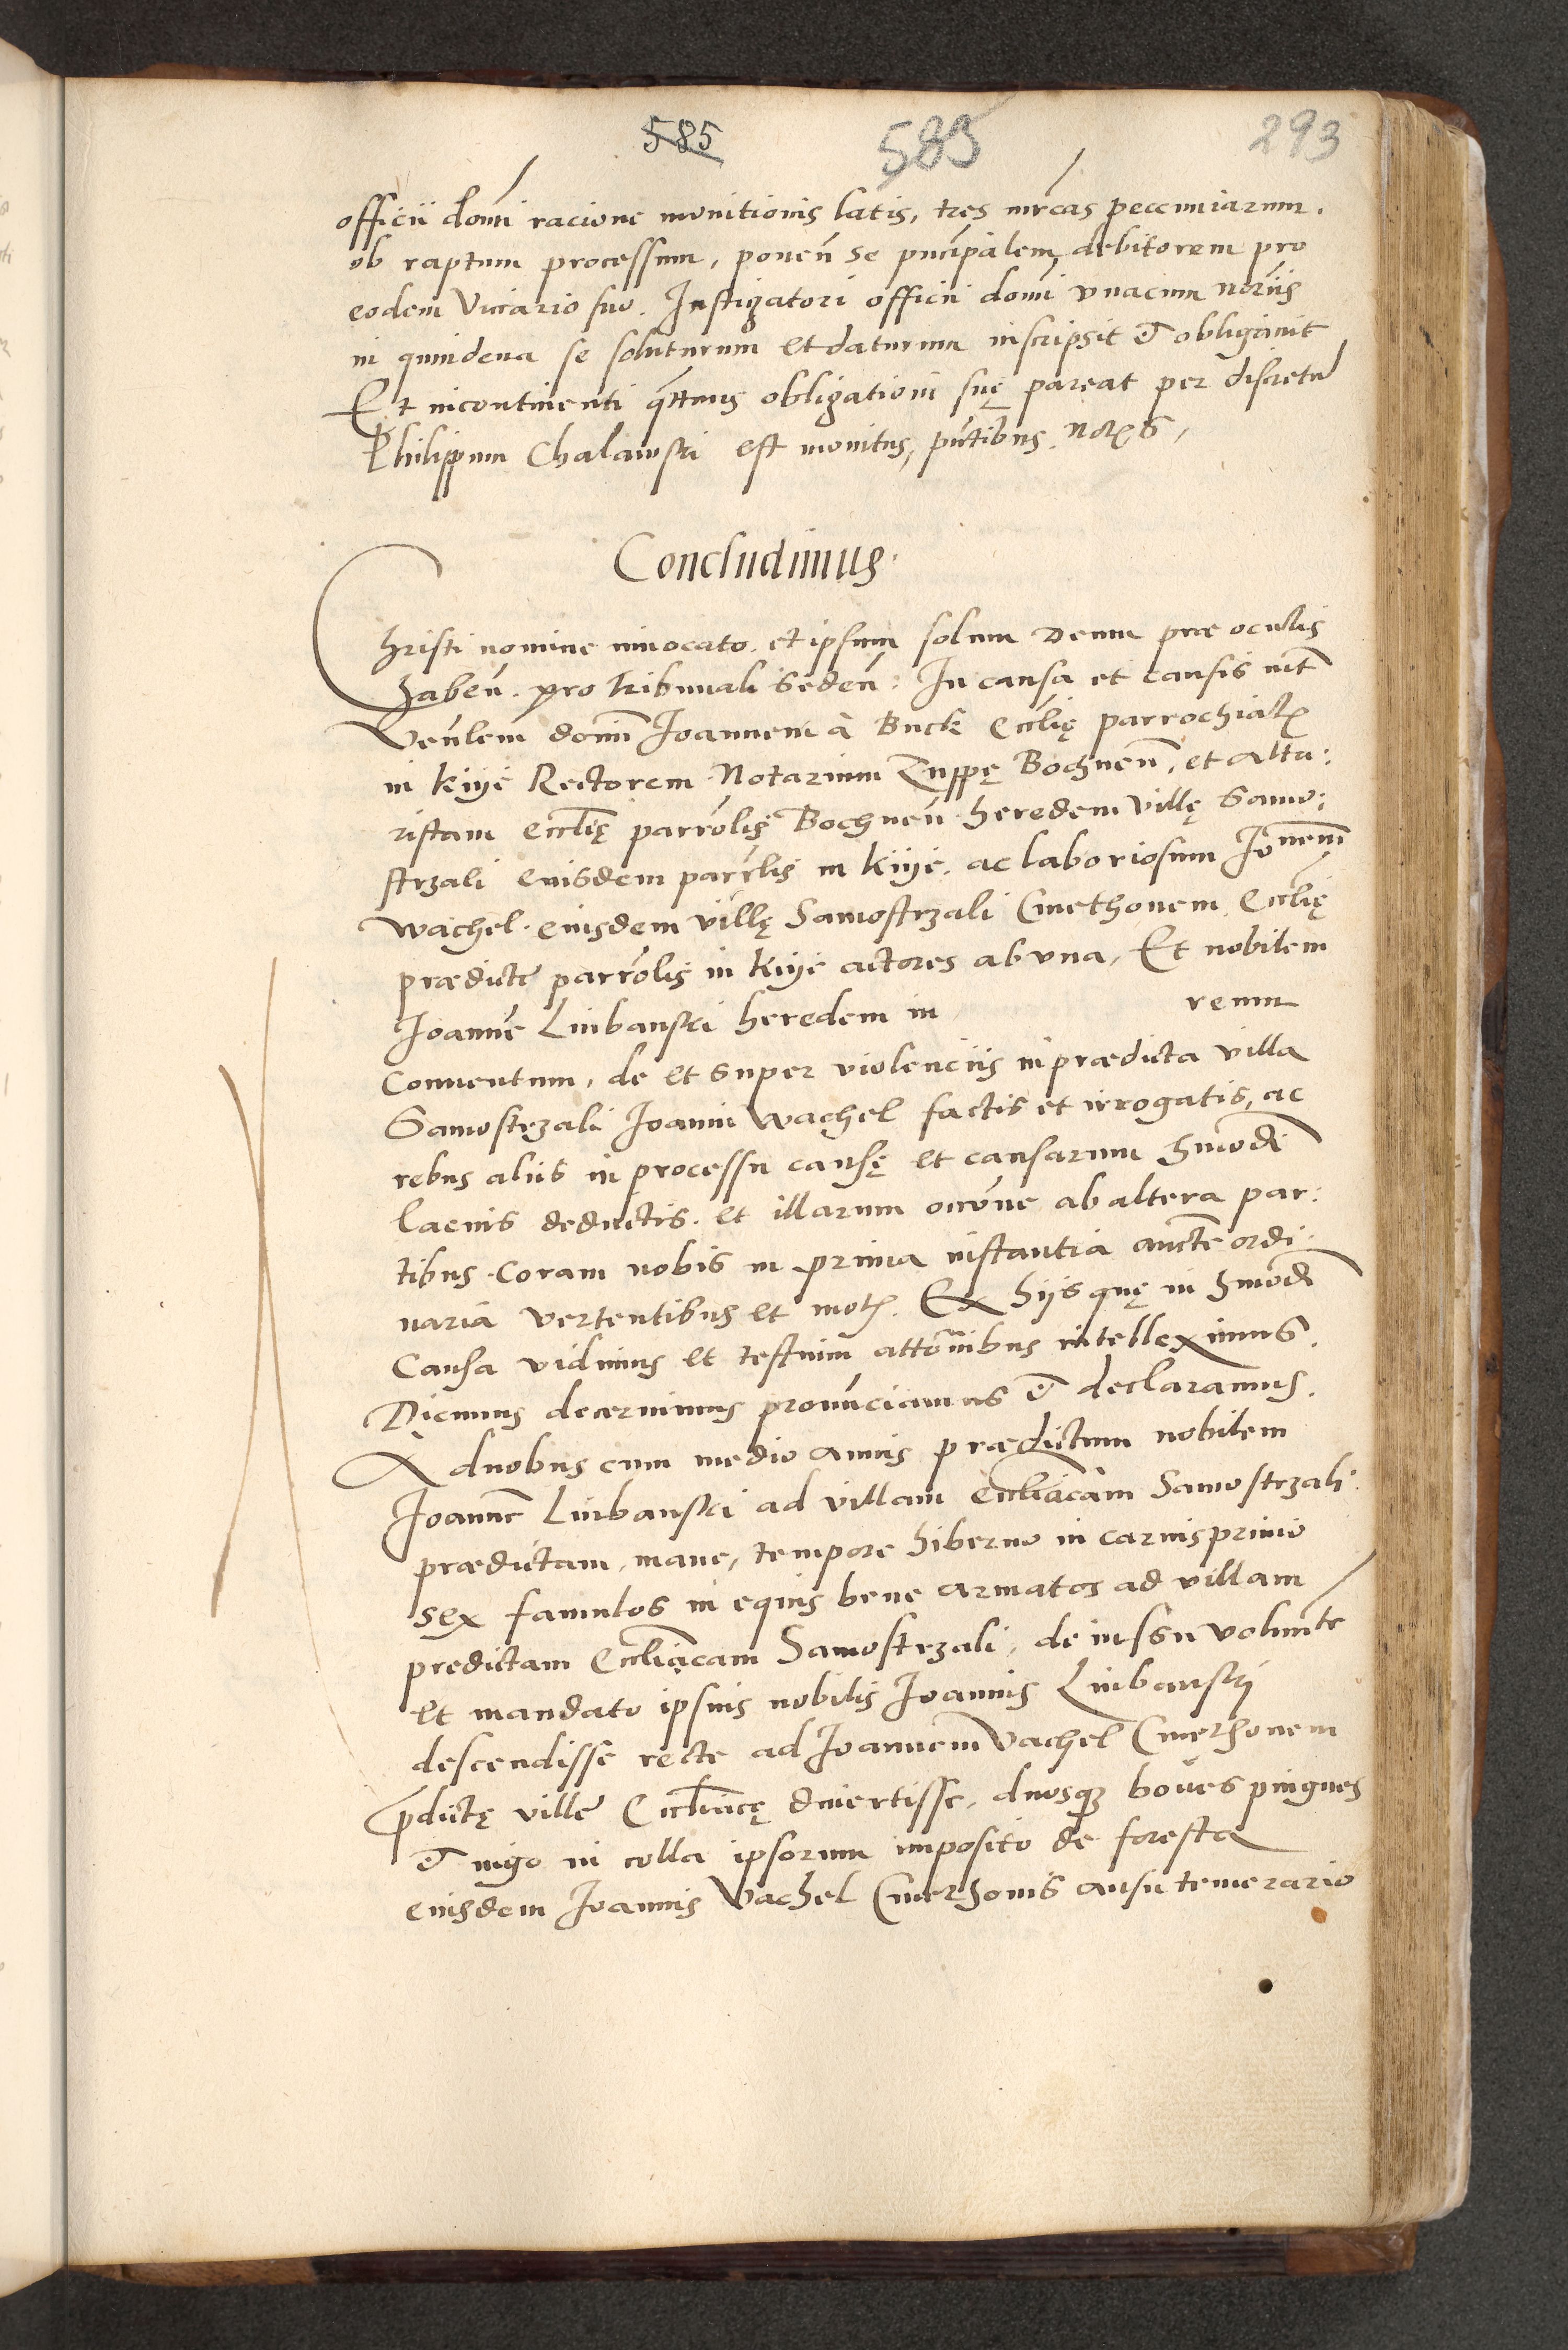 585 589 293
officii domi racione monitionis latis, tres mrcas pecuniarum.
ob raptum processum, ponen̄ se pncipalem debitorem pro
eodem Vicario suo. Instigatori officii domi vnacum noriis
in quindena se soluturum et daturum inscripsit et obligauit
Et incontinenti qtinus obligationi suę pareat per discretu
Philippum Chalawski est monitus, pntibus. Notis
Concludimus.
Christi nomine inuocato. et ipsum solum Deum præ oculis
haben̄. pro tribunali seden̄. In causa et causis int
Venlem domi Joannem à Buck Ecclię parrochialis
in Kÿyë Rectorem Notarium Zuppę Bochnen̄, et Alta:
ristam ecclię parrolis Bochnen̄ heredem villę Samo:
strzali eiusdem parrlis in Kÿyë. ac laboriosum Jonem
Wachel. eiusdem villę Samostrzali Cmethonem Ecclię
prædicte parrolis in Kÿyë actores ab vna, Et nobilem
Joanne Luibanski heredem in reum
Conuentum, de et super violencijs in prædicta villa
Samostrzali Joanni Wachel factis et irrogatis, ac
rebus alijs in processu causę et causarum hmodi
lacius deductis. et illarum occone ab altera par:
tibus. Coram nobis in prima instantia aucte ordi:
naria vertentibus et motis. Ex hijs quę in hmodi
Causa vidimus et testium attonibus intelleximus.
Dicimus decernimus pronunciamus et declaramus.
A duobus cum medio annis prædictum nobilem
Joanne Luibanski ad villam eccliacam Samostrzali
prædictam, mane, tempore hiberno in carnisprimo
sex famulos in equis bene armatos ad villam
predictam Eccliacam Samostrzali, de iussu volunte
et mandato ipsius nobilis Joannis Luibanskj
descendisse recte ad Joannem Vachel Cmethonem
pdictę ville Eccliacę diuertisse, duosque boues pingues
et iugo in colla ipsorum imposito de foresta
eiusdem Joannis Wachel Cmethonis ausu temerario